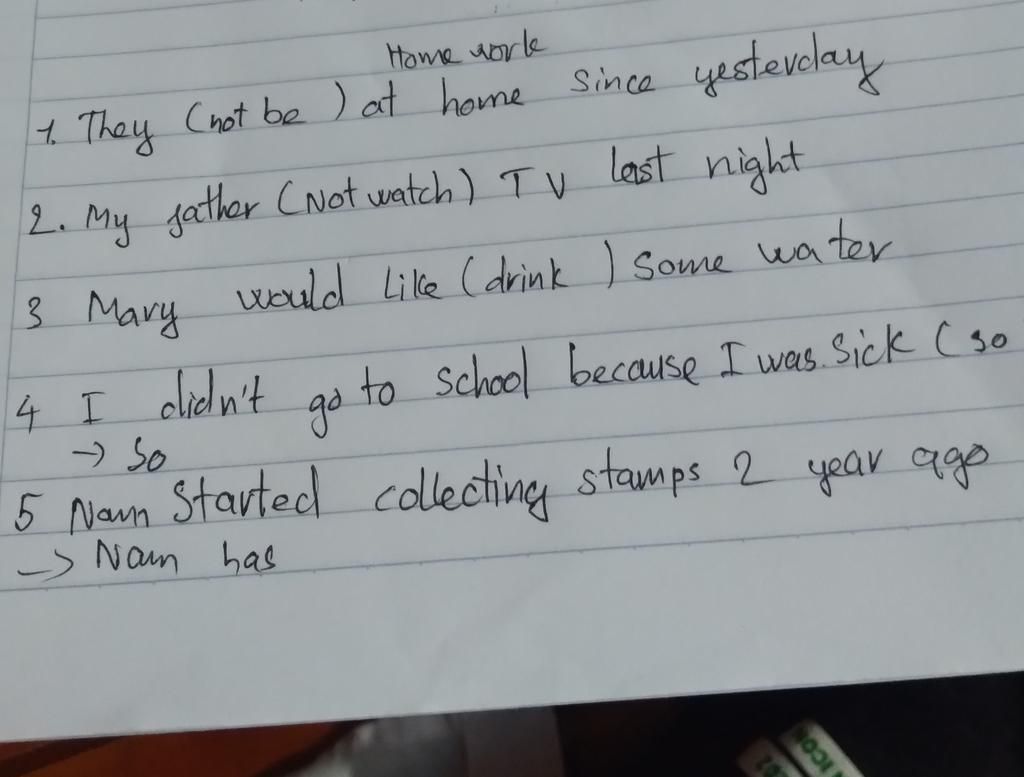 Home work
1. They (not be ) at home since yesterday
2. My father (Not watch) TV last night
3 Mary would like (drink ) some water
4 I didn't go to school because I was sick (so
→ So
5 Nam Started collecting stamps 2 year ago
→ Nam has
ICON